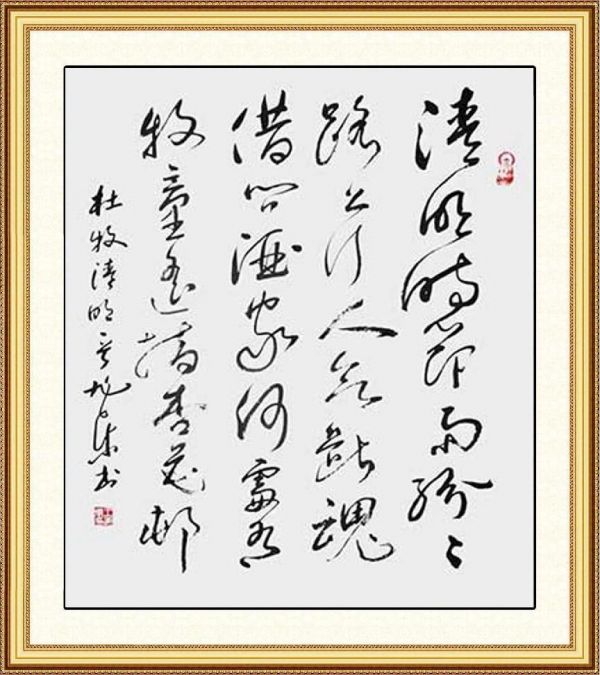 清明時節雨紛紛
路上行人欲斷魂
借問酒家何處有
牧童遙指杏花邨
杜牧清明書